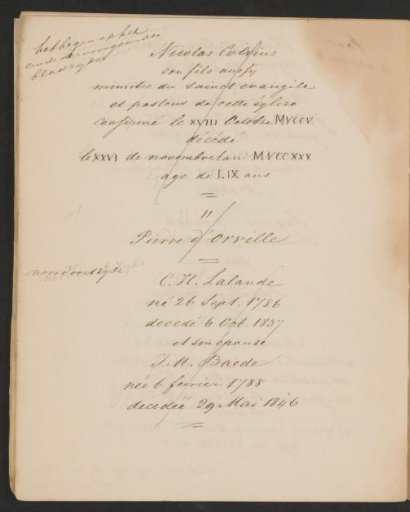 het begin op het
eind der voorgaande
bladzijde
Nicolas Colvius
son fils aussy
ministre du sainct evangile
et pasteur de cette église
confirmé le XVIII Octobre MVCCV.
décédé
le XXVI de novembre lan MVCCXXX
age de LIX ans
11
Pierre d'Orville
noordoostzijde
C. H. Lalande
né 26 Sept. 1786
decedé 6 Oct. 1837
et son épouse
J. M. Baede
née 6 février 1788
decedée 29 Mai 1846